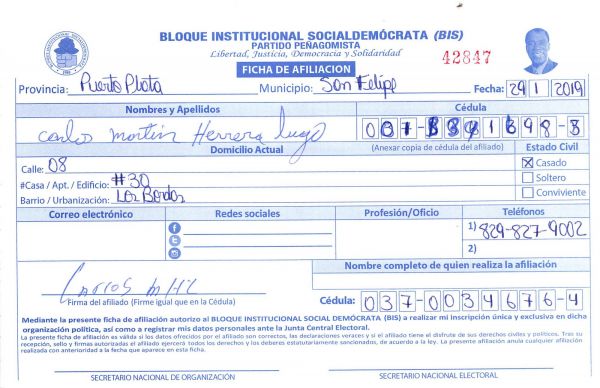 BLOQUE INSTITUCIONAL SOCIALDEMÓCRATA (BIS)
PARTIDO PEÑAGOMISTA
Libertad, Justicia, Democracia y Solidaridad
42847
FICHA DE AFILIACION
Provincia: Puerto Plata Municipio: San Felipe Fecha: 29 1 2019
Nombres y Apellidos Cédula
Carlos Martin Herrera Lugo
Domicilio Actual (Anexar copia de cédula del afiliado) Estado Civil
Calle: 08 Casado
#Casa / Apt. / Edificio: #30 Soltero
Barrio / Urbanización: Los Bordas Conviviente
Correo electrónico Redes sociales Profesión/Oficio Teléfonos
1) 829-827-9002
2)
Nombre completo de quien realiza la afiliación
Firma del afiliado (Firme igual que en la Cédula) Cédula: 037-0034676-4
Mediante la presente ficha de afiliación autorizo al BLOQUE INSTITUCIONAL SOCIAL DEMÓCRATA (BIS) a realizar mi Inscripción única y exclusiva en dicha
organización política, así como a registrar mis datos personales ante la Junta Central Electoral.
La presente ficha de afiliación es válida si las datos ofrecidos por el afiliado son correctas, las declaraciones veraces y si el afiliado tiene el disfrute de sus derechos civiles y políticos. Tras su
recepción, sello y firmas autorizadas el afiliado ejercerá todos los derechos y los deberes estatutariamente sancionados, de acuerdo a la ley. La presente afiliación anula cualquier afiliación
realizada con anterioridad a la fecha que aparece en esta ficha.
SECRETARIO NACIONAL DE ORGANIZACIÓN SECRETARIO NACIONAL ELECTORAL